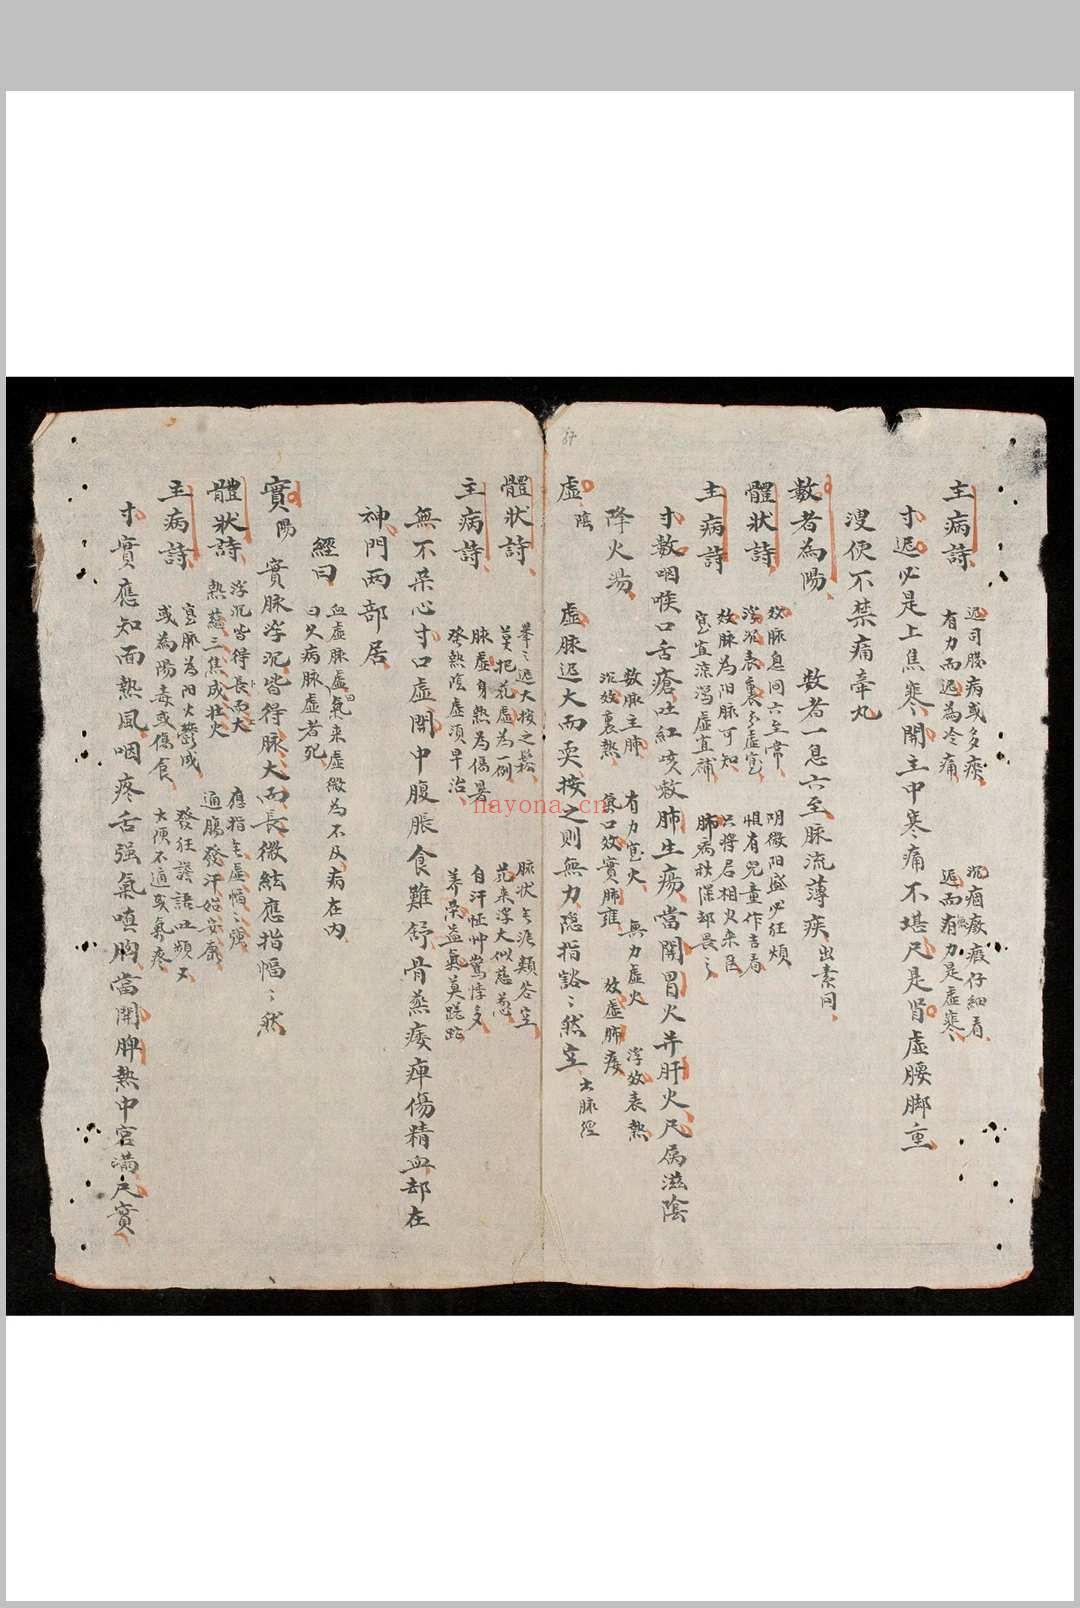 主病詩
遲司臟病或多痰
沉痼癥瘕仔細看
有力而遲為冷痛
遲而無力是虛寒
寸遲必是上焦寒關主中寒痛不堪尺是腎虛腰脚重
溲便不禁痛牽丸
数者為陽 数者一息六至脉流薄疾出素问
體狀詩
数脉息间六至常
阴微阳盛必狂烦
浮沉表裏分虛实
惟有兒童作吉看
主病詩
数脉為阳脉可知
只将君相火来医
实宜凉瀉虛宜補
肺病秋深却畏之
寸数咽喉口舌瘡吐紅咳嗽肺生瘍當関胃火并肝火尺属滋陰
降火湯
数脉主肺 有力实火 無力虛火 浮数表熱
沉数裏熱 氣口数實肺癰 数虛肺痿
虛陰 虛脉迟大而耎按之則無力隐指豁〻然空出脉經
67
體狀詩
舉之迟大按之鬆
脉状無涯類谷空
莫把芤虛為一例
芤来浮大似慈葱
主病詩
脉虛身熱為傷暑
自汗怔忡驚悸多
發熱陰虛須早治
养荣益氣莫蹉跎
無不荣心寸口虛関中腹脹食難舒骨蒸痿痺傷精血却在
神門两部居
經曰
血虛脉虛曰氣来虛微為不及病在内
曰久病脉虛者死
實陽 實脉浮沉皆得脉大而長微絃應指愊〻然
體狀詩
浮沉皆得長而大
應指無虛愊〻强
熱蘊三焦成壮火
通腸發汗始安康
主病詩
实脉为阳火鬱成
發狂譫語吐頻又
或為陽毒或傷食
大便不通或氣疼
寸實應知面熱風咽疼舌强氣嗔胸當関脾熱中宫满尺實
nayona.cn